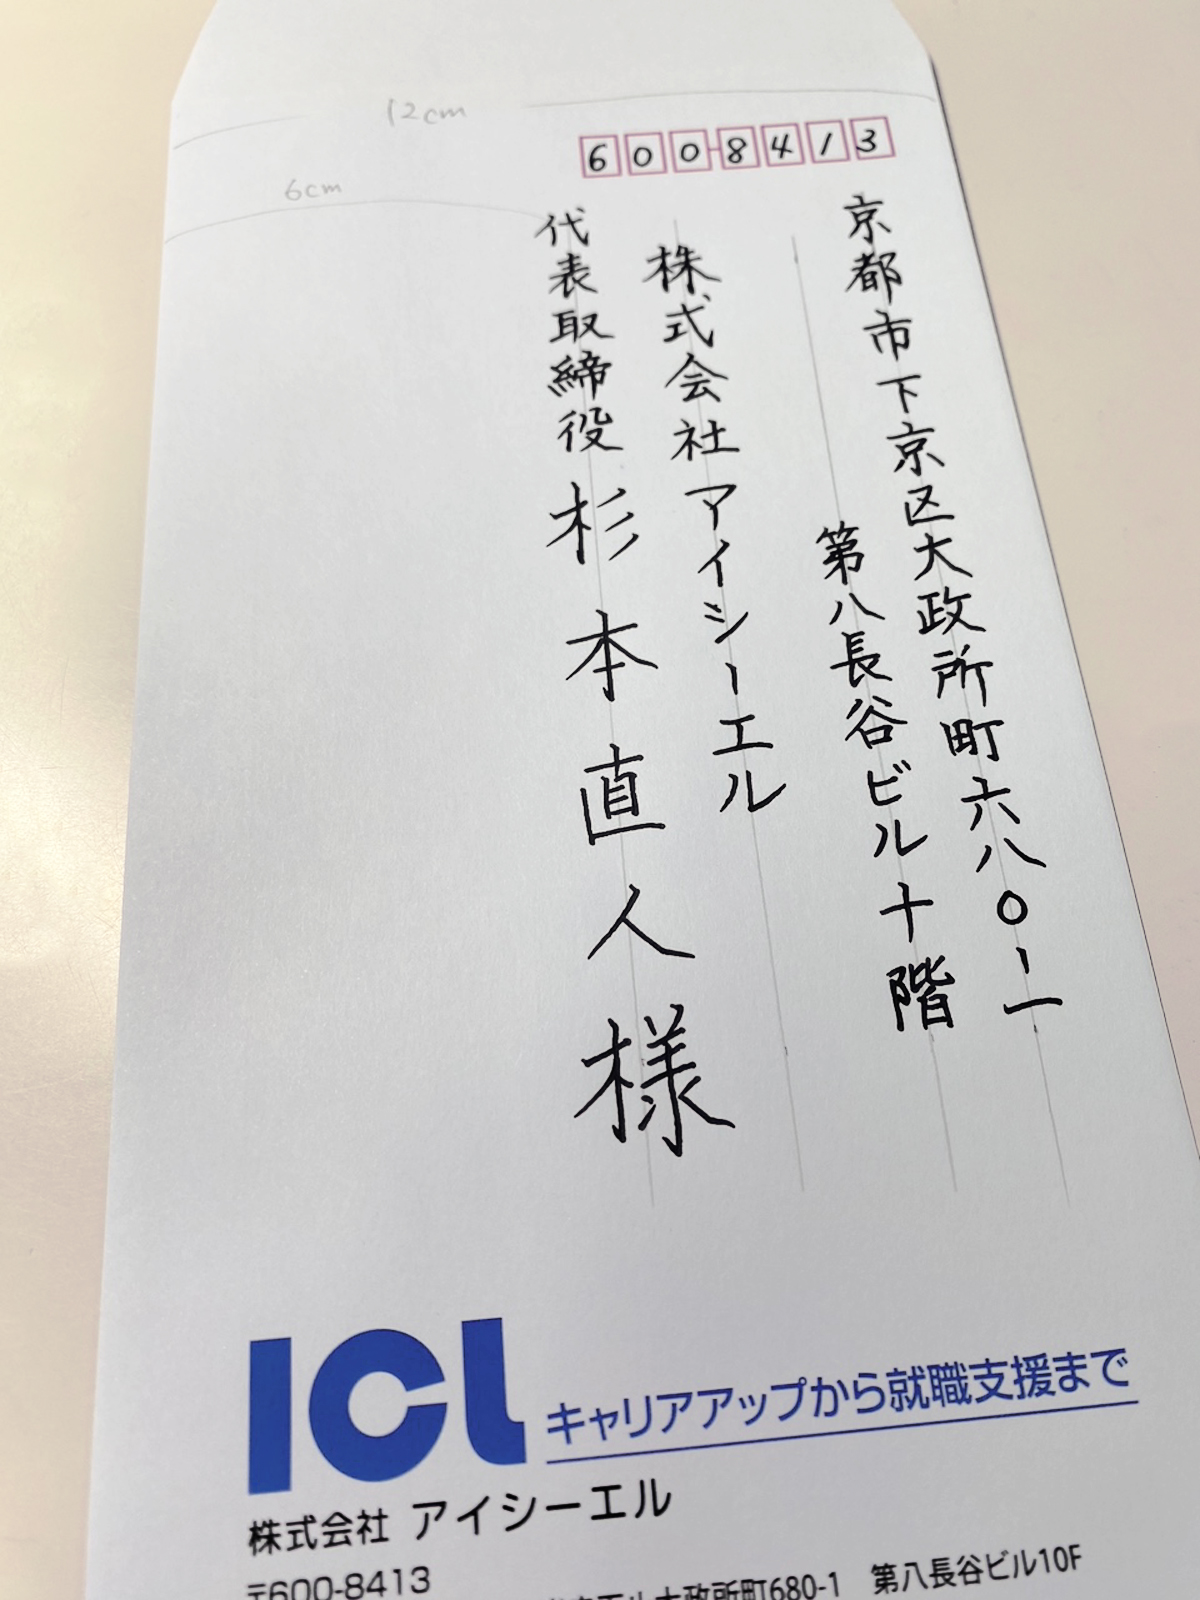 12cm
6cm
6008413
京都市下京区大政所町六八〇-一
第八長谷ビル十階
株式会社アイシーエル
代表取締役 杉本直人様
ICL キャリアアップから就職支援まで
株式会社 アイシーエル
〒600-8413
大政所町680-1 第八長谷ビル10F